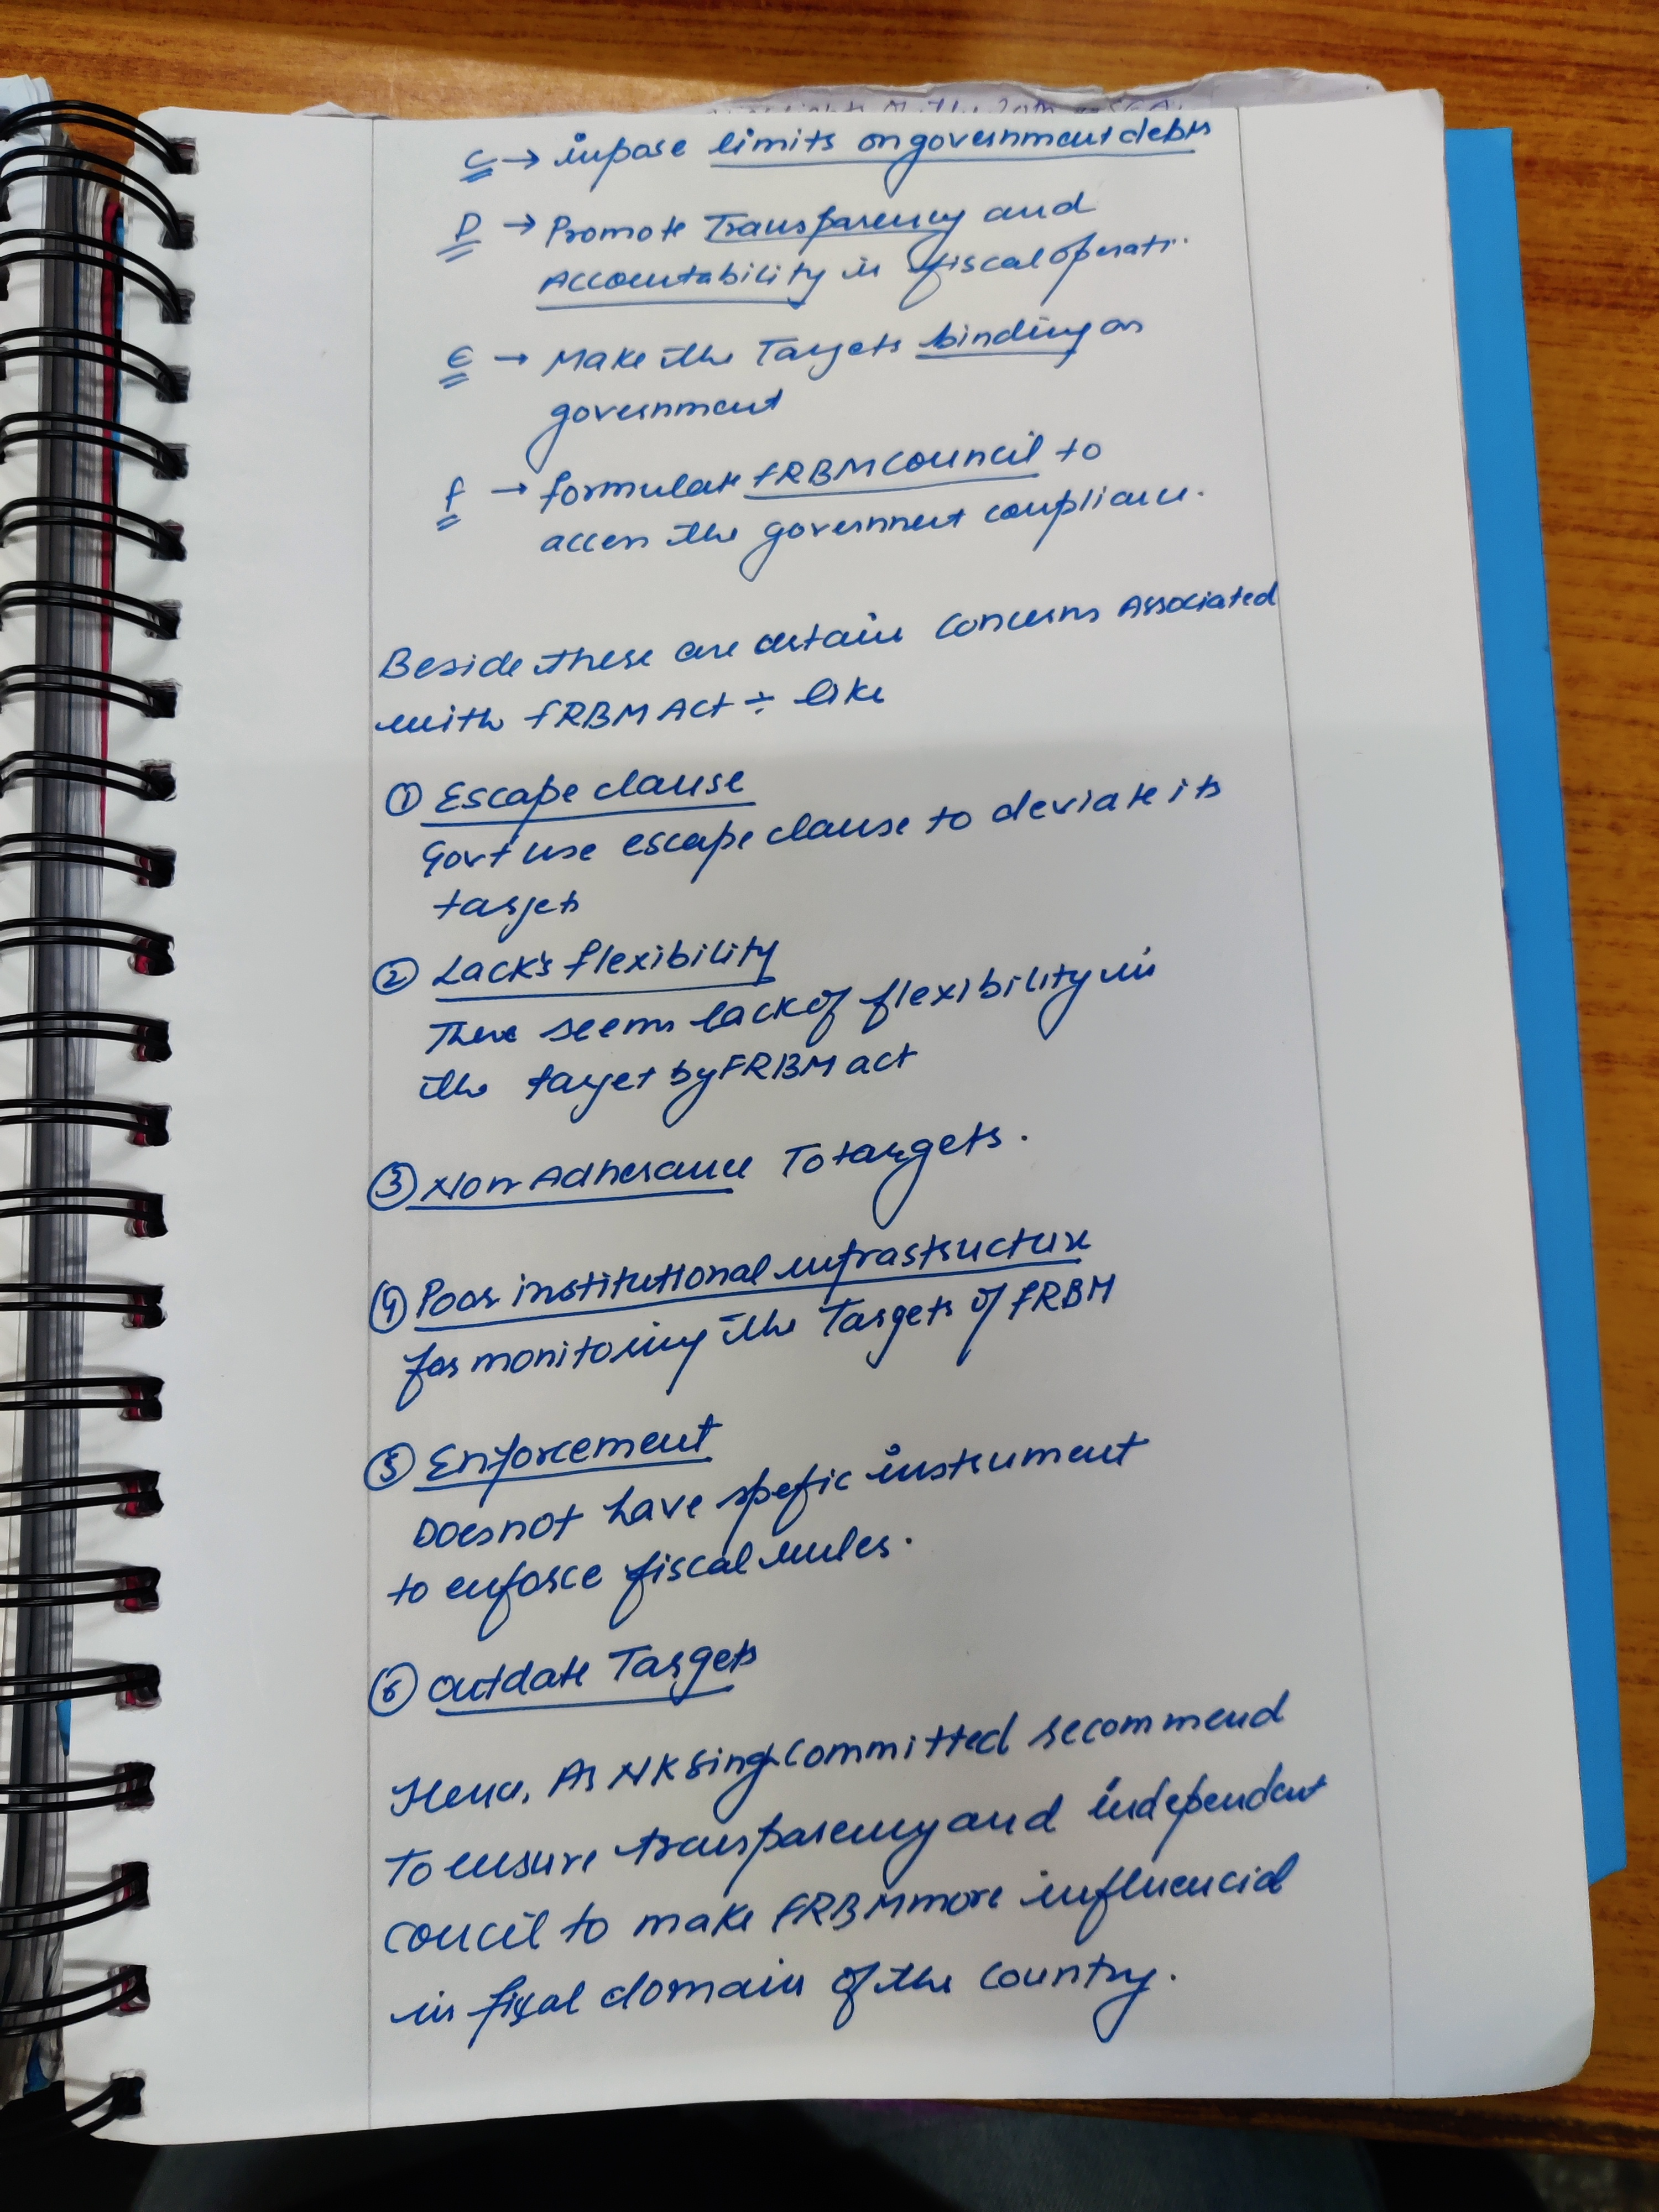 C → impose limits on government debts
D → Promote Transparency and
Accountability in fiscal operati.
E → Make the Targets binding on
government
f → formulate fRBM council to
access the government compliance.
Beside these are certain concerns Associated
with fRBM Act ÷ like
① Escape clause
Govt use escape clause to deviate its
targets
② Lack's flexibility
There seems lack of flexibility in
the target by FRBM act
③ Non Adherance To targets.
④ Poor institutional infrastructure
for monitoring the Targets of fRBM
⑤ Enforcement
Does not have spefic instrument
to enforce fiscal rules.
⑥ outdate Targets
Hence, As NK Singh committed recommend
To ensure transparency and independent
coucil to make FRBM more influencial
in fiscal domain of the country.